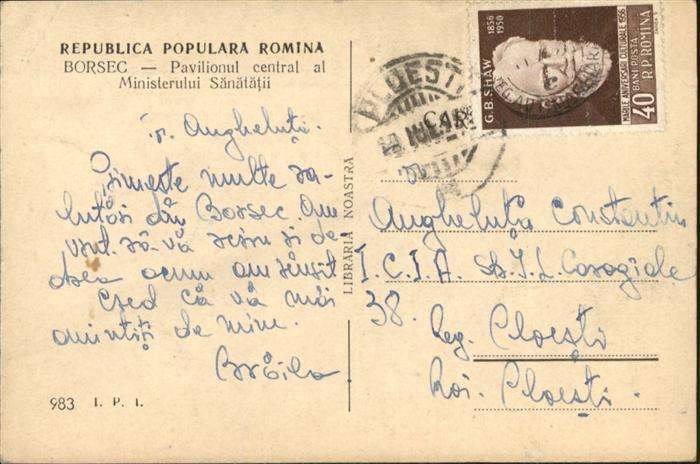 REPUBLICA POPULARA ROMINA
BORSEC — Pavilionul central al
Ministerului Sănătății
Angheluță.
Primește multe sa-
lutări din Borsec. Am
vrut să vă scriu și de
acum am
Cred că vă mai
amintiți de mine.
Brăila
983 I. P. I.
LIBRARIA NOASTRĂ
PLOEȘTI
1856
1950
G.B.SHAW
MARILE ANIVERSARI CULTURALE 1956
POSTA
R.P.ROMINA
40 BANI
Angheluța Constantin
I.C.I.A. I.L. Caragiale
38.
Reg. Ploești
Roi. Ploești.